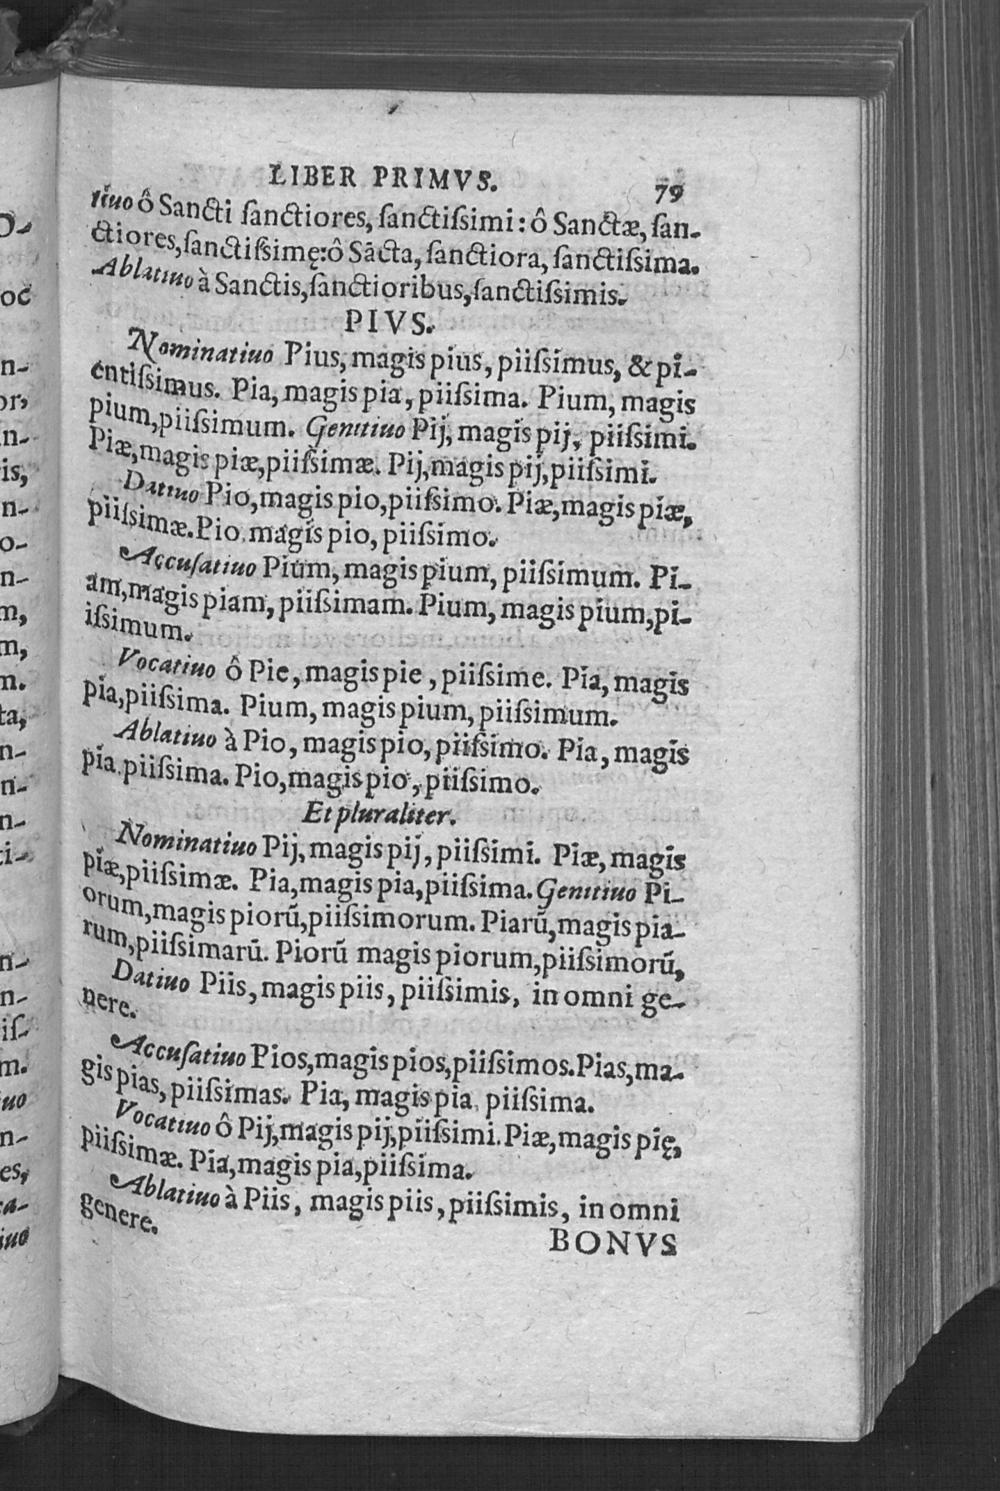 LIBER PRIMVS. 79
tiuo ô Sancti ſanctiores, ſanctiſsimi: ô Sanctæ, ſan-
ctiores, ſanctiſsimę: ô Sācta, ſanctiora, ſanctiſsima.
Ablatiuo à Sanctis, ſanctioribus, ſanctiſsimis.
PIVS.
Nominatiuo Pius, magis pius, piiſsimus, & pi-
entiſsimus. Pia, magis pia, piiſsima. Pium, magis
pium, piiſsimum. Genitiuo Pij, magis pij, piiſsimi.
Piæ, magis piæ, piiſsimæ. Pij, magis pij, piiſsimi.
Datiuo Pio, magis pio, piiſsimo. Piæ, magis piæ,
piiſsimæ. Pio, magis pio, piiſsimo.
Accuſatiuo Pium, magis pium, piiſsimum. Pi-
am, magis piam, piiſsimam. Pium, magis pium, pi-
iſsimum.
Vocatiuo ô Pie, magis pie, piiſsime. Pia, magis
pia, piiſsima. Pium, magis pium, piiſsimum.
Ablatiuo à Pio, magis pio, piiſsimo. Pia, magis
pia, piiſsima. Pio, magis pio, piiſsimo.
Et pluraliter.
Nominatiuo Pij, magis pij, piiſsimi. Piæ, magis
piæ, piiſsimæ. Pia, magis pia, piiſsima. Genitiuo Pi-
orum, magis piorū, piiſsimorum. Piarū, magis pia-
rum, piiſsimarū. Piorū magis piorum, piiſsimorū,
Datiuo Piis, magis piis, piiſsimis, in omni ge-
nere.
Accuſatiuo Pios, magis pios, piiſsimos. Pias, ma-
gis pias, piiſsimas. Pia, magis pia, piiſsima.
Vocatiuo ô Pij, magis pij, piiſsimi. Piæ, magis pię,
piiſsimæ. Pia, magis pia, piiſsima.
Ablatiuo à Piis, magis piis, piiſsimis, in omni
genere.
BONVS